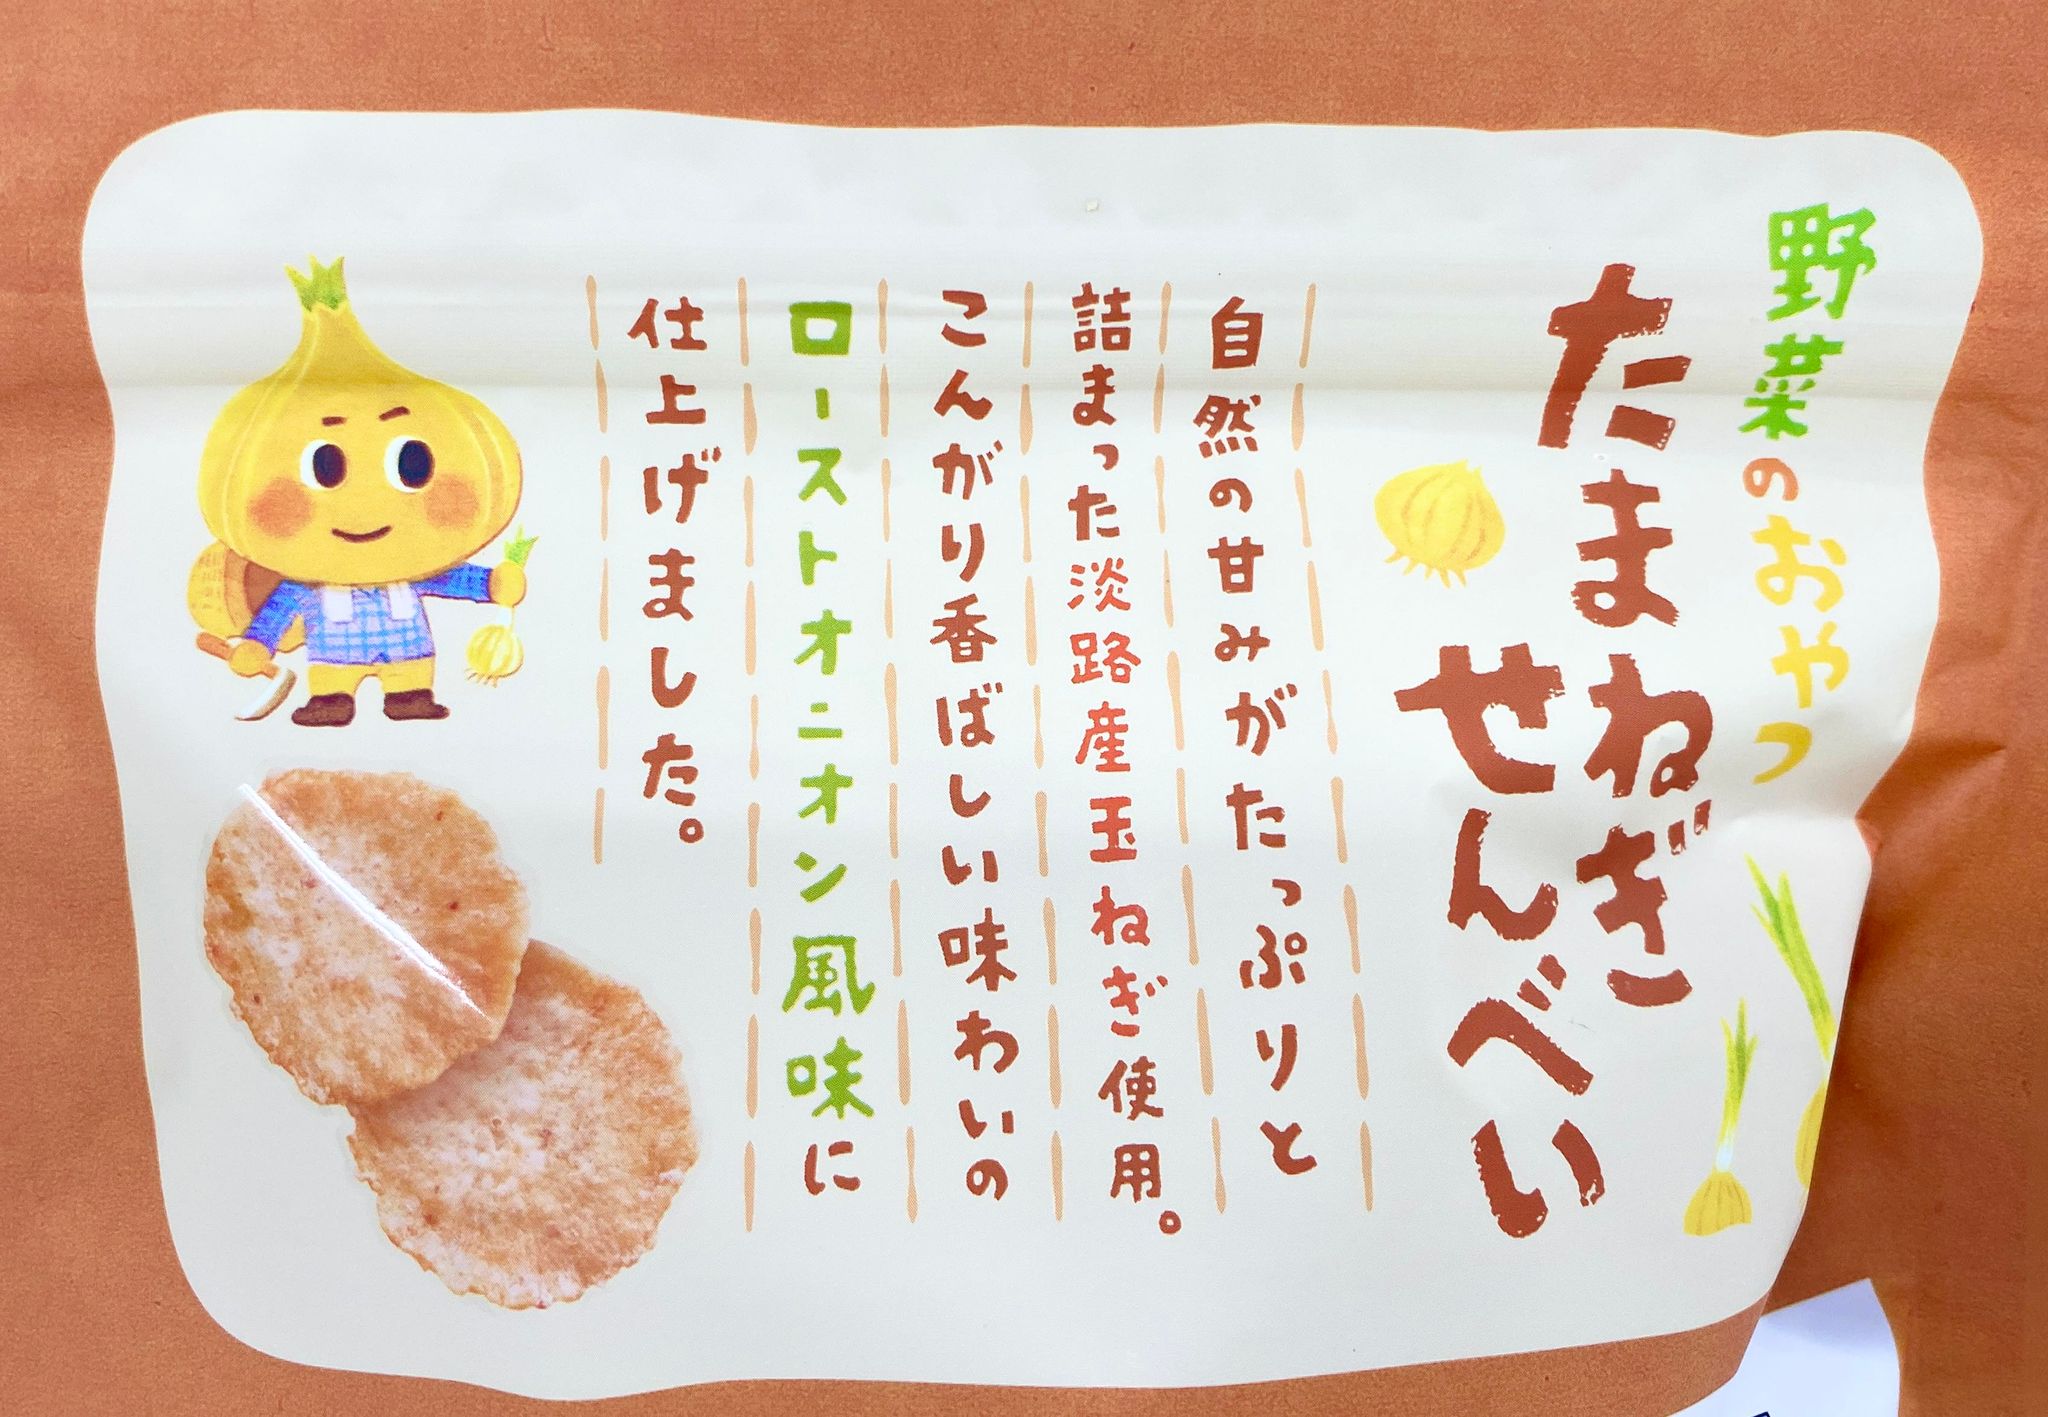 野菜のおやつ
たまねぎ
せんべい
自然の甘みがたっぷりと
詰まった淡路産玉ねぎ使用。
こんがり香ばしい味わいの
ローストオニオン風味に
仕上げました。